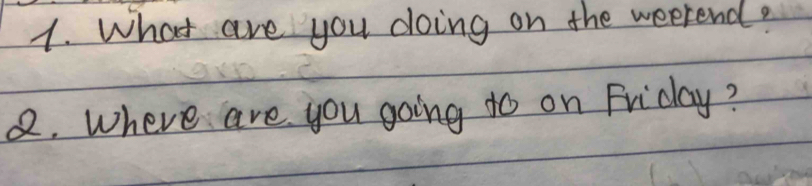 1. What are you doing on the weekend?
2. Where are you going to on Friday?